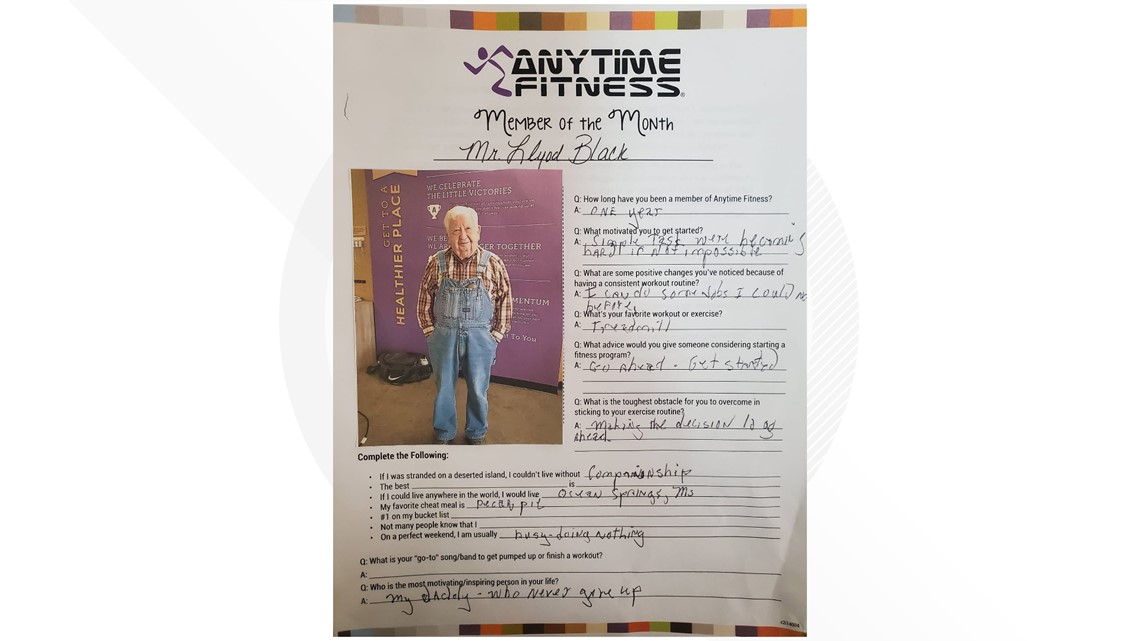 ANYTIME
FITNESS
Member of the Month
Mr. Llyod Black
GET TO A
HEALTHIER PLACE
WE CELEBRATE
THE LITTLE VICTORIES
WE BE
WE AR GER TOGETHER
MENTUM
t To You
Q: How long have you been a member of Anytime Fitness?
A: ONE year
Q: What motivated you to get started?
A: Simple Task were becoming
hard if Not impossible
Q: What are some positive changes you've noticed because of
having a consistent workout routine?
A: I can do some Jobs I could no
before.
Q: What's your favorite workout or exercise?
A: Treadmill
Q: What advice would you give someone considering starting a
fitness program?
A: Go Ahead - Get started
Q: What is the toughest obstacle for you to overcome in
sticking to your exercise routine?
A: Making the decision to go
Ahead.
Complete the Following:
• If I was stranded on a deserted island, I couldn't live without Companionship
• The best is
• If I could live anywhere in the world, I would live Ocean Springs, Ms
• My favorite cheat meal is pecan pie
• #1 on my bucket list
• Not many people know that I
• On a perfect weekend, I am usually busy-doing nothing
Q: What is your "go-to" song/band to get pumped up or finish a workout?
A:
Q: Who is the most motivating/inspiring person in your life?
A: My daddy - who never gave up